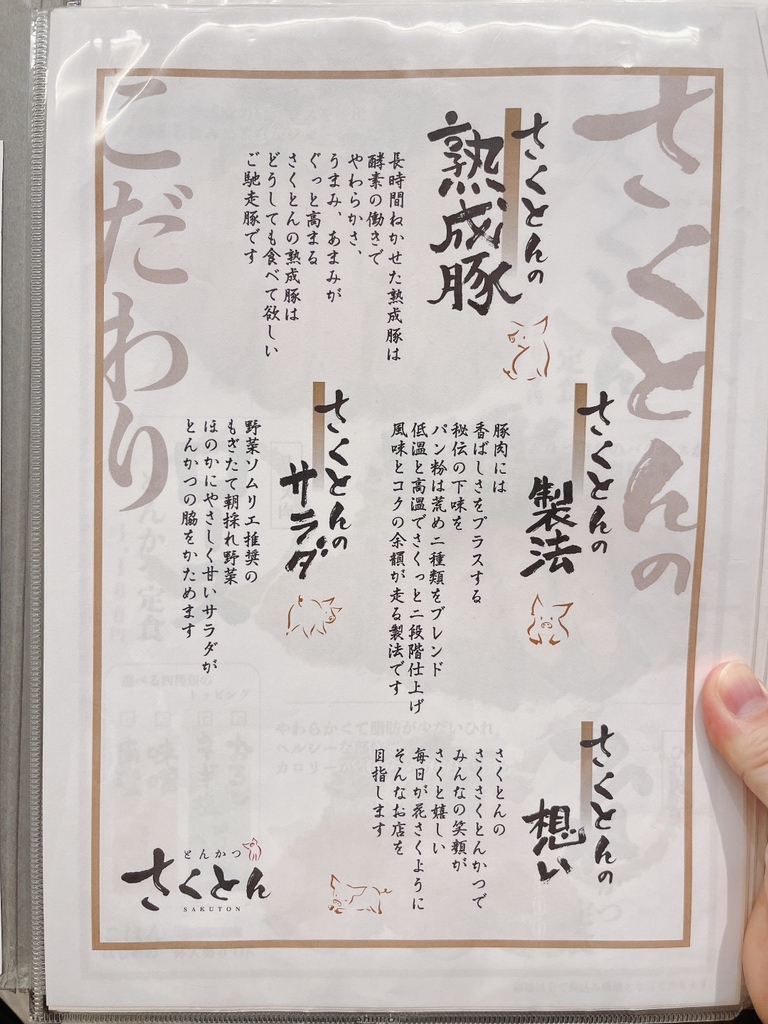 さくとんの
こだわり
さくとんの
熟成豚
長時間ねかせた熟成豚は
酵素の働きで
やわらかさ、
うまみ、あまみが
ぐっと高まる
さくとんの熟成豚は
どうしても食べて欲しい
ご馳走豚です
さくとんの
製法
豚肉には
香ばしさをプラスする
秘伝の下味を
パン粉は荒め二種類をブレンド
低温と高温でさくっと二段階仕上げ
風味とコクの余韻が走る製法です
さくとんの
サラダ
野菜ソムリエ推奨の
もぎたて朝採れ野菜
ほのかにやさしく甘いサラダが
とんかつの脇をかためます
さくとんの
想い
さくとんの
さくさくとんかつで
みんなの笑顔が
さくと嬉しい
毎日が花さくように
そんなお店を
目指します
とんかつ
さくとん
SAKUTON
やわらかくて脂肪が少ないひれ